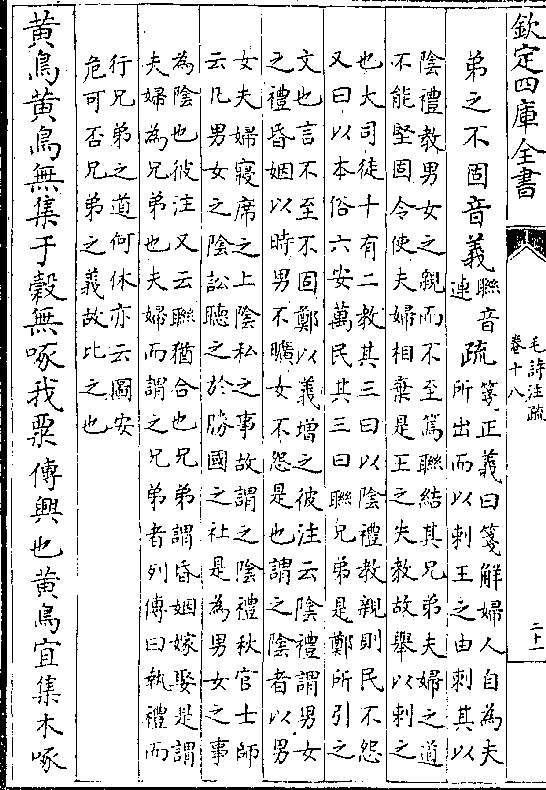 欽定四庫全書
毛詩注疏
卷十八
二十一
弟之不固音義聯音連疏箋正義曰箋解婦人自為夫
所出而以刺王之由刺其以
陰禮教男女之親而不至篤聯結其兄弟夫婦之道
不能堅固令使夫婦相棄是王之失教故舉以刺之
也大司徒十有二教其三曰以陰禮教親則民不怨
又曰以本俗六安萬民其三曰聯兄弟是鄭所引之
文也言不至不固鄭以義增之彼注云陰禮謂男女
之禮昏姻以時男不曠女不怨是也謂之陰者以男
女夫婦寢席之上陰私之事故謂之陰禮秋官士師
云凡男女之陰訟聽之於勝國之社是為男女之事
為陰也彼注又云聯猶合也兄弟謂昏姻嫁娶是謂
夫婦為兄弟也夫婦而謂之兄弟者列傳曰執禮而
行兄弟之道何休亦云圖安
危可否兄弟之義故比之也
黃鳥黃鳥無集于穀無啄我粟傳興也黃鳥宜集木啄